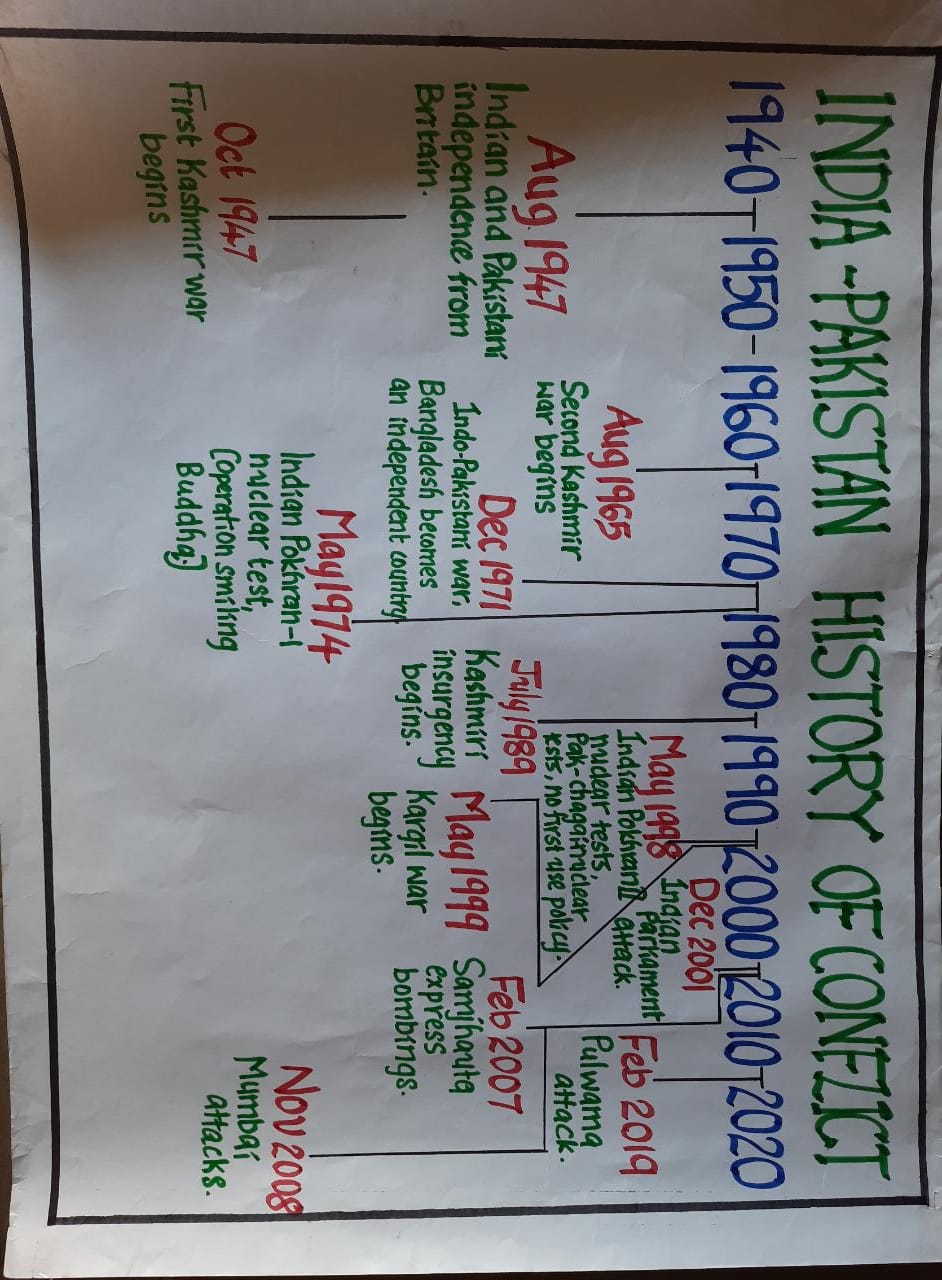 INDIA - PAKISTAN HISTORY OF CONFLICT
1940 - 1950 - 1960 - 1970 - 1980 - 1990 - 2000 - 2010 - 2020
Aug 1947
Indian and Pakistani
independence from
Britain.
Oct 1947
First Kashmir war
begins
Aug 1965
Second Kashmir
war begins
Dec 1971
Indo-Pakistani war,
Bangladesh becomes
an independent country
May 1974
Indian Pokhran-1
nuclear test,
(operation smiling
Buddha)
July 1989
Kashmiri
insurgency
begins.
May 1998
Indian Pokhran II
nuclear tests,
Pak-chaggi nuclear
tsts, no first use policy.
May 1999
Kargil war
begins.
Dec 2001
Indian
Parliament
attack.
Feb 2007
Samjhauta
express
bombings.
Nov 2008
Mumbai
attacks.
Feb 2019
Pulwama
attack.